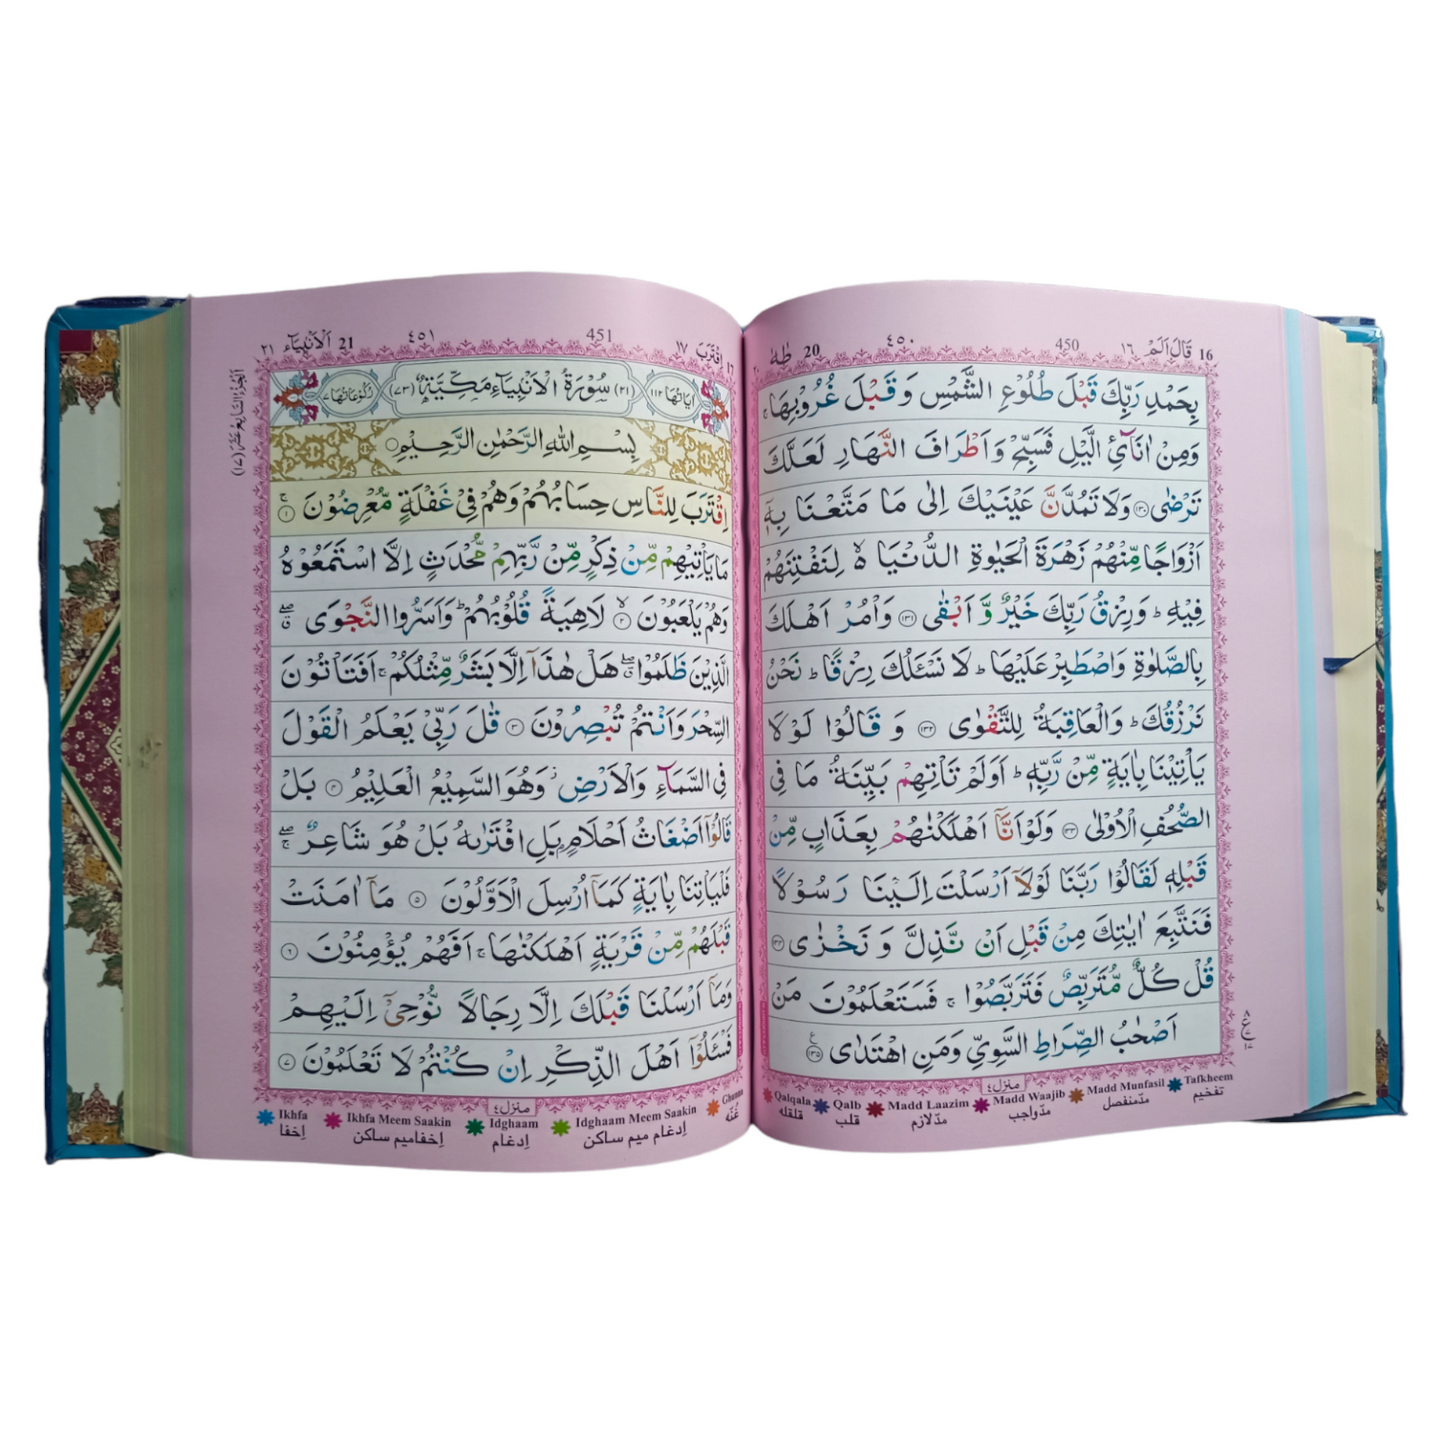 16 قَالَ اَلَمۡ ١٦ 450 ٤٥٠ 20 طٰهٰ
بِحَمۡدِ رَبِّكَ قَبۡلَ طُلُوۡعِ الشَّمۡسِ وَ قَبۡلَ غُرُوۡبِهَا ۚ
وَمِنۡ اٰنَآئِ الَّيۡلِ فَسَبِّحۡ وَ اَطۡرَافَ النَّهَارِ لَعَلَّكَ
تَرۡضٰى ﴿١٣٠﴾ وَلَا تَمُدَّنَّ عَيۡنَيۡكَ اِلٰى مَا مَتَّعۡنَا بِهٖۤ
اَزۡوَاجًا مِّنۡهُمۡ زَهۡرَةَ الۡحَيٰوةِ الدُّنۡيَا ۙ لِنَفۡتِنَهُمۡ
فِيۡهِ ؕ وَرِزۡقُ رَبِّكَ خَيۡرٌ وَّ اَبۡقٰى ﴿١٣١﴾ وَاۡمُرۡ اَهۡلَكَ
بِالصَّلٰوةِ وَاصۡطَبِرۡ عَلَيۡهَا ؕ لَا نَسۡـَٔلُكَ رِزۡقًا ؕ نَحۡنُ
نَرۡزُقُكَ ؕ وَالۡعَاقِبَةُ لِلتَّقۡوٰى ﴿١٣٢﴾ وَ قَالُوۡا لَوۡلَا
يَاۡتِيۡنَا بِاٰيَةٍ مِّنۡ رَّبِّهٖ ؕ اَوَلَمۡ تَاۡتِهِمۡ بَيِّنَةُ مَا فِى
الصُّحُفِ الۡاُوۡلٰى ﴿١٣٣﴾ وَلَوۡ اَنَّاۤ اَهۡلَكۡنٰهُمۡ بِعَذَابٍ مِّنۡ
قَبۡلِهٖ لَقَالُوۡا رَبَّنَا لَوۡلَاۤ اَرۡسَلۡتَ اِلَيۡنَا رَسُوۡلًا
فَنَتَّبِعَ اٰيٰتِكَ مِنۡ قَبۡلِ اَنۡ نَّذِلَّ وَ نَخۡزٰى ﴿١٣٤﴾
قُلۡ كُلٌّ مُّتَرَبِّصٌ فَتَرَبَّصُوۡا ۚ فَسَتَعۡلَمُوۡنَ مَنۡ
اَصۡحٰبُ الصِّرَاطِ السَّوِىِّ وَمَنِ اهۡتَدٰى ﴿١٣٥﴾
منزل٤
Qalqala Qalb Madd Laazim Madd Waajib Madd Munfasil Tafkheem
قلقله قلب مدّ لازم مدّ واجب مدّ منفصل تفخيم
اقۡتَرَبَ ١٧ 451 ٤٥١ 21 اَلۡاَنۡبِيَآء ٢١
اٰيَاتُهَا ١١٢ (٢١) سُوۡرَةُ الۡاَنۡبِيَآءِ مَكِّيَّةٌ (٧٣) رُكُوۡعَاتُهَا ٧
بِسۡمِ اللهِ الرَّحۡمٰنِ الرَّحِيۡمِ
اِقۡتَرَبَ لِلنَّاسِ حِسَابُهُمۡ وَهُمۡ فِىۡ غَفۡلَةٍ مُّعۡرِضُوۡنَ ۚ ﴿١﴾
مَا يَاۡتِيۡهِمۡ مِّنۡ ذِكۡرٍ مِّنۡ رَّبِّهِمۡ مُّحۡدَثٍ اِلَّا اسۡتَمَعُوۡهُ
وَهُمۡ يَلۡعَبُوۡنَ ۙ ﴿٢﴾ لَاهِيَةً قُلُوۡبُهُمۡ ؕ وَاَسَرُّوا النَّجۡوَى ۖ ق
الَّذِيۡنَ ظَلَمُوۡا ۖ ق هَلۡ هٰذَاۤ اِلَّا بَشَرٌ مِّثۡلُكُمۡ ۚ اَفَتَاۡتُوۡنَ
السِّحۡرَ وَاَنۡتُمۡ تُبۡصِرُوۡنَ ﴿٣﴾ قٰلَ رَبِّىۡ يَعۡلَمُ الۡقَوۡلَ
فِى السَّمَآءِ وَالۡاَرۡضِ ۫ وَهُوَ السَّمِيۡعُ الۡعَلِيۡمُ ﴿٤﴾ بَلۡ
قَالُوۡۤا اَضۡغَاثُ اَحۡلَامٍۭ بَلِ افۡتَرٰىهُ بَلۡ هُوَ شَاعِرٌ ۖۚ
فَلۡيَاۡتِنَا بِاٰيَةٍ كَمَاۤ اُرۡسِلَ الۡاَوَّلُوۡنَ ﴿٥﴾ مَاۤ اٰمَنَتۡ
قَبۡلَهُمۡ مِّنۡ قَرۡيَةٍ اَهۡلَكۡنٰهَا ۚ اَفَهُمۡ يُؤۡمِنُوۡنَ ﴿٦﴾
وَمَاۤ اَرۡسَلۡنَا قَبۡلَكَ اِلَّا رِجَالًا نُّوۡحِىۡۤ اِلَيۡهِمۡ
فَسۡـَٔلُوۡۤا اَهۡلَ الذِّكۡرِ اِنۡ كُنۡتُمۡ لَا تَعۡلَمُوۡنَ ﴿٧﴾
منزل٤
Ikhfa Ikhfa Meem Saakin Idghaam Idghaam Meem Saakin Ghunna
اِخفا اِخفا میم ساكن اِدغام اِدغام ميم ساكن غُنّه
اَلۡجُزۡءُ السَّابِعُ عَشَرَ (١٧)